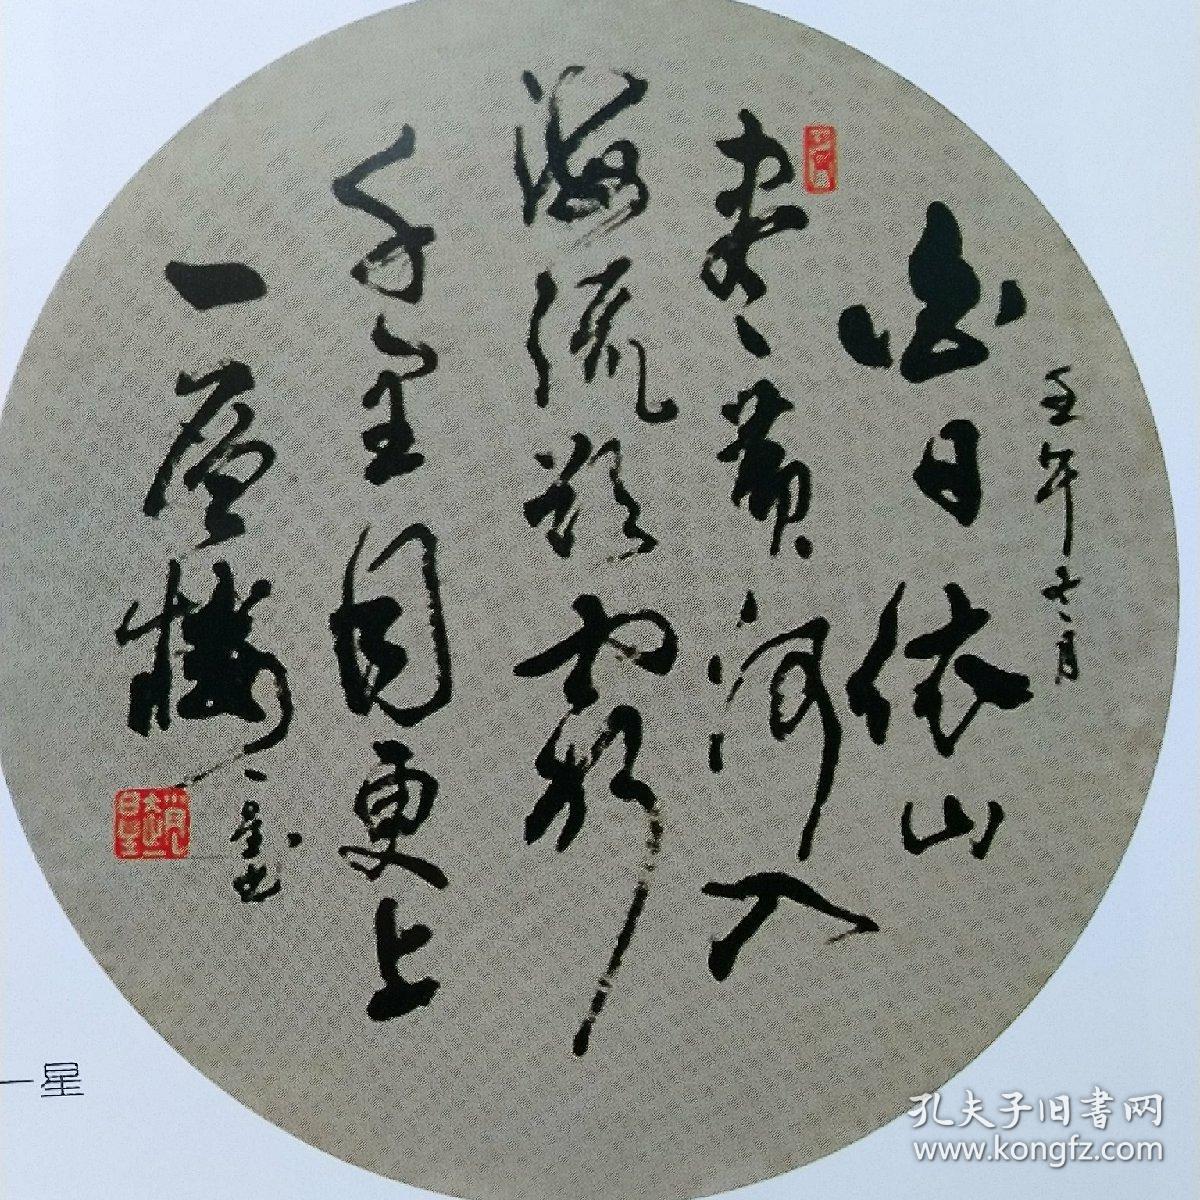 壬午 月
白日依山
盡黄河入
海流欲窮
千里目更上
一層樓
一星书
趙一星
一星
孔夫子旧書网
www.kongfz.com